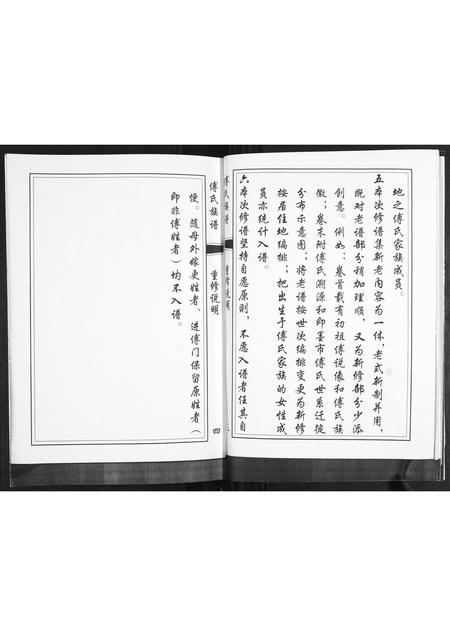 地之傅氏家族成员。
五本次修谱集新老内容为一体，老式新制并用，
既对老谱部分稍加理顺，又为新修部分少添
创意。例如：卷首载有初祖傅说像和傅氏族
徽；卷末附傅氏溯源和即墨市傅氏世系迁徙
分布示意图；将老谱按世次编排变更为新修
按居住地编排；把出生于傅氏家族的女性成
员亦统计入谱。
六本次修谱坚持自愿原则，不愿入谱者任其自
傅氏族谱
重修说明
三
傅氏族谱
重修说明
四
便。随母外嫁更姓者、进傅门保留原姓者（
即非傅姓者）均不入谱。